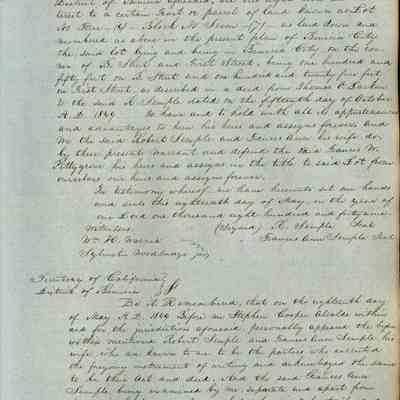 District of Benicia aforesaid, all our right
terest to a certain tract or parcel of land known as Lot
No Four (4) Block No Seven (7) as laid down and
numbered as above in the present plan of Benicia City
the said lot lying and being in Benicia City on the cor-
ner of B. Street and First Street, being one hundred and
fifty feet on B. Street and one hundred and twenty five feet
on First Street, as described in a deed from Thomas O. Larkin
to the said R. Semple dated on the fifteenth day of October
A.D. 1847 To have and to hold with all its appurtenances
and advantages to him his heirs and assigns forever. And
We the said Robert Semple and Frances Ann his wife do
by these presents warrant and defend the said Francis W.
Pettygrove his heirs and assigns in the title to said Lot from
ourselves our heirs and assigns forever.
In testimony whereof we have hereunto set our hands
and seals this eighteenth day of May, in the year of
our Lord one thousand eight hundred and forty nine.
Witnesses. (Signed) R. Semple Seal
Wm H. Warren Frances Ann Semple Seal
Sylvester Woodbridge jr
Territory of California
District of Benicia
Be it Remembered, that on the eighteenth day
of May A.D. 1849 Before me Stephen Cooper Alcalde within
and for the jurisdiction aforesaid, personally appeared the before
within mentioned Robert Semple and Frances Ann Semple his
wife who are known to me to be the parties who executed
the foregoing instrument of writing and acknowledged the same
to be their act and deed. And the said Frances Ann
Semple being examined by me separate and apart from